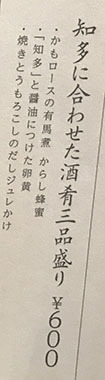 知多に合わせた酒肴三品盛り ¥600
・かもロースの有馬煮 からし蜂蜜
・「知多」と醤油につけた卵黄
・焼きとうもろこしのだしジュレかけ